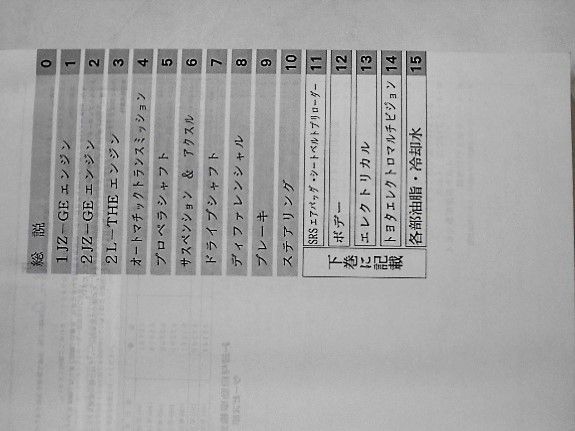 総説 0
1JZ-GEエンジン 1
2JZ-GEエンジン 2
2L-THEエンジン 3
オートマチックトランスミッション 4
プロペラシャフト 5
サスペンション & アクスル 6
ドライブシャフト 7
ディファレンシャル 8
ブレーキ 9
ステアリング 10
下巻に記載
SRSエアバッグ・シートベルトプリローダー 11
ボデー 12
エレクトリカル 13
トヨタエレクトロマルチビジョン 14
各部油脂・冷却水 15